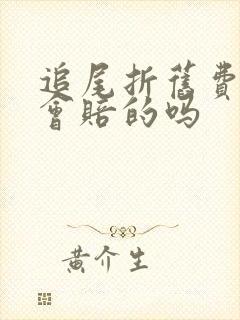 追尾折旧费
会赔的吗
黄介生